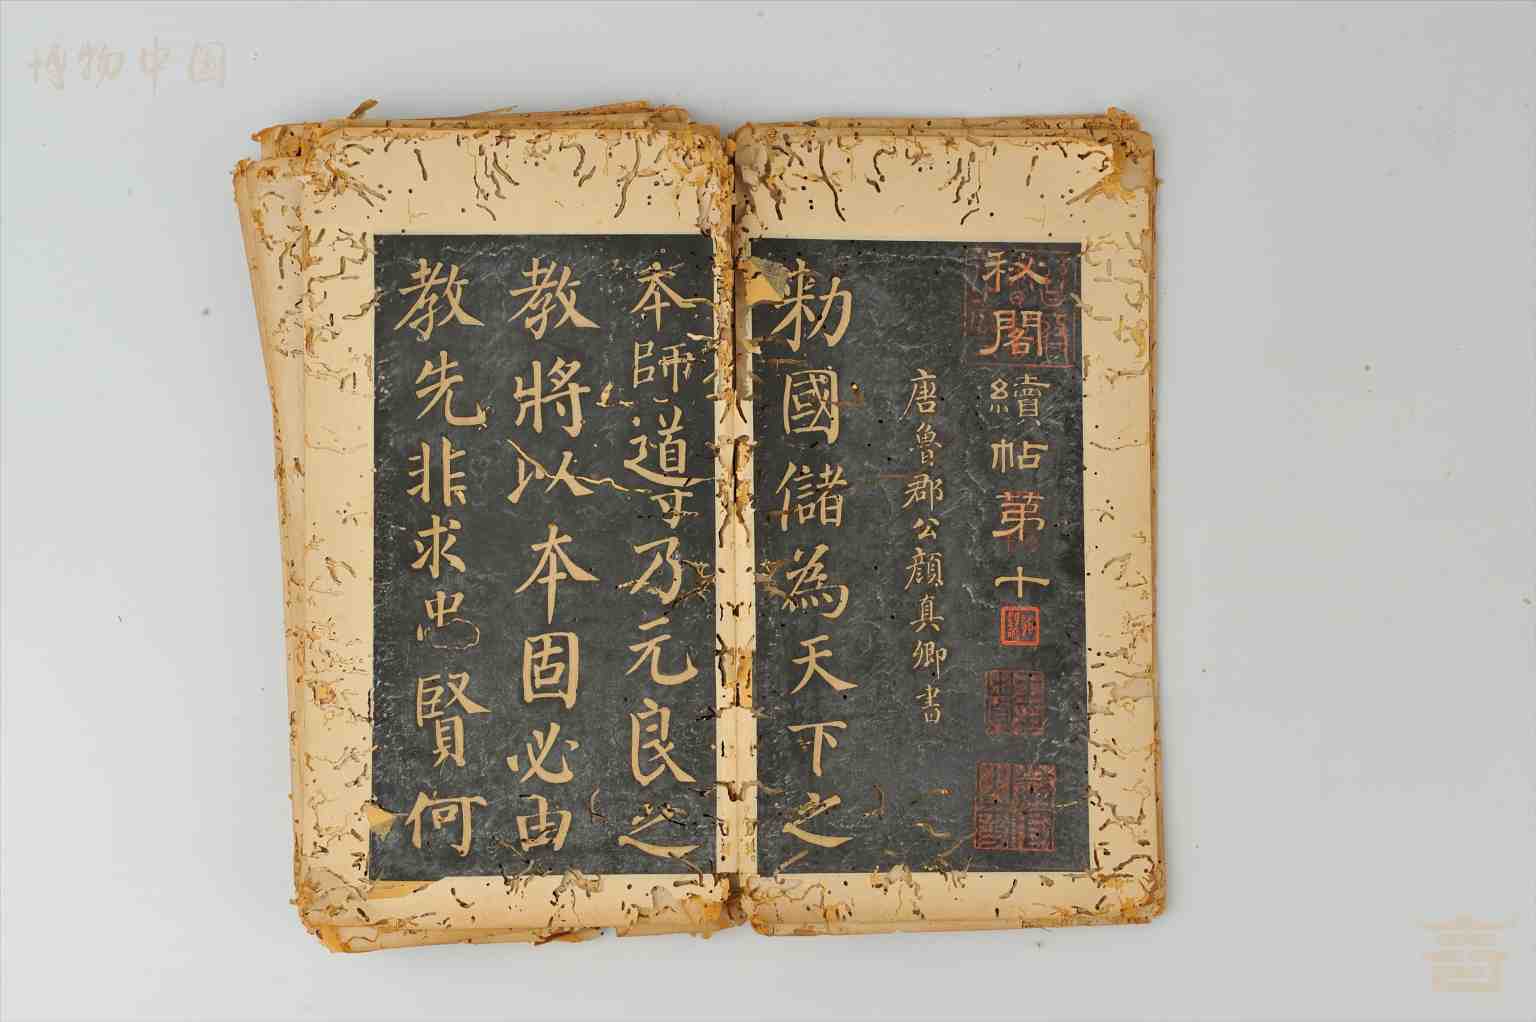 博物中国
秘閣續帖第十
唐魯郡公顔真卿書
勑國儲為天下之
本師導乃元良之
教將以本固必由
教先非求忠賢何